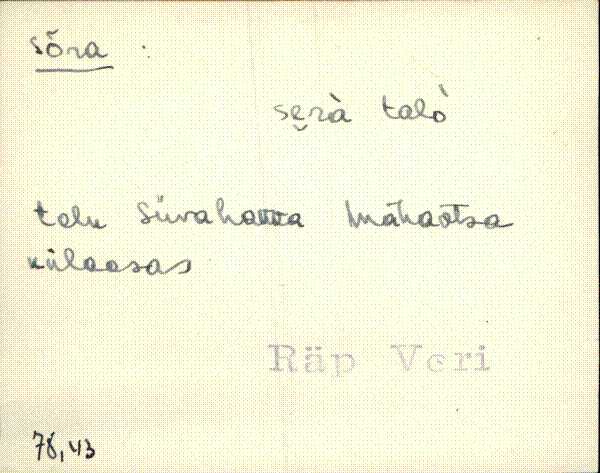 Sõra .
sẹrà talò
talu Süvahavva Mähaotsa
külaosas
Räp Veri
78,43